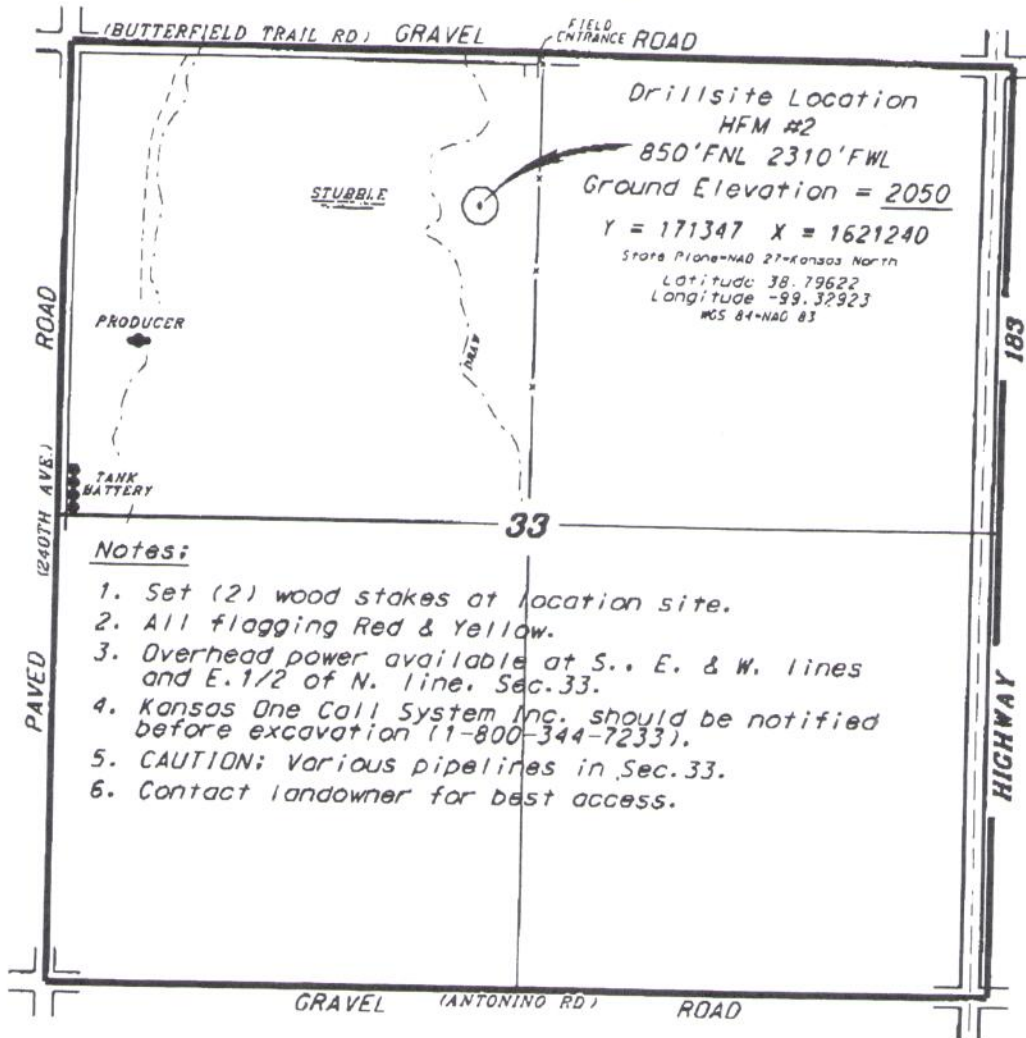 (BUTTERFIELD TRAIL RD) GRAVEL
FIELD
ENTRANCE ROAD
Drillsite Location
HFM #2
850'FNL 2310'FWL
Ground Elevation = 2050
Y = 171347 X = 1621240
State Plane-NAD 27-Kansas North
Latitude 38.79622
Longitude -99.32923
WGS 84-NAD 83
STUBBLE
PRODUCER
DRAW
TANK
BATTERY
PAVED (240TH AVE.) ROAD
HIGHWAY 183
33
Notes:
1. Set (2) wood stakes at location site.
2. All flagging Red & Yellow.
3. Overhead power available at S., E. & W. lines
and E.1/2 of N. line. Sec.33.
4. Kansas One Call System Inc. should be notified
before excavation (1-800-344-7233).
5. CAUTION: Various pipelines in Sec.33.
6. Contact landowner for best access.
GRAVEL (ANTONINO RD) ROAD